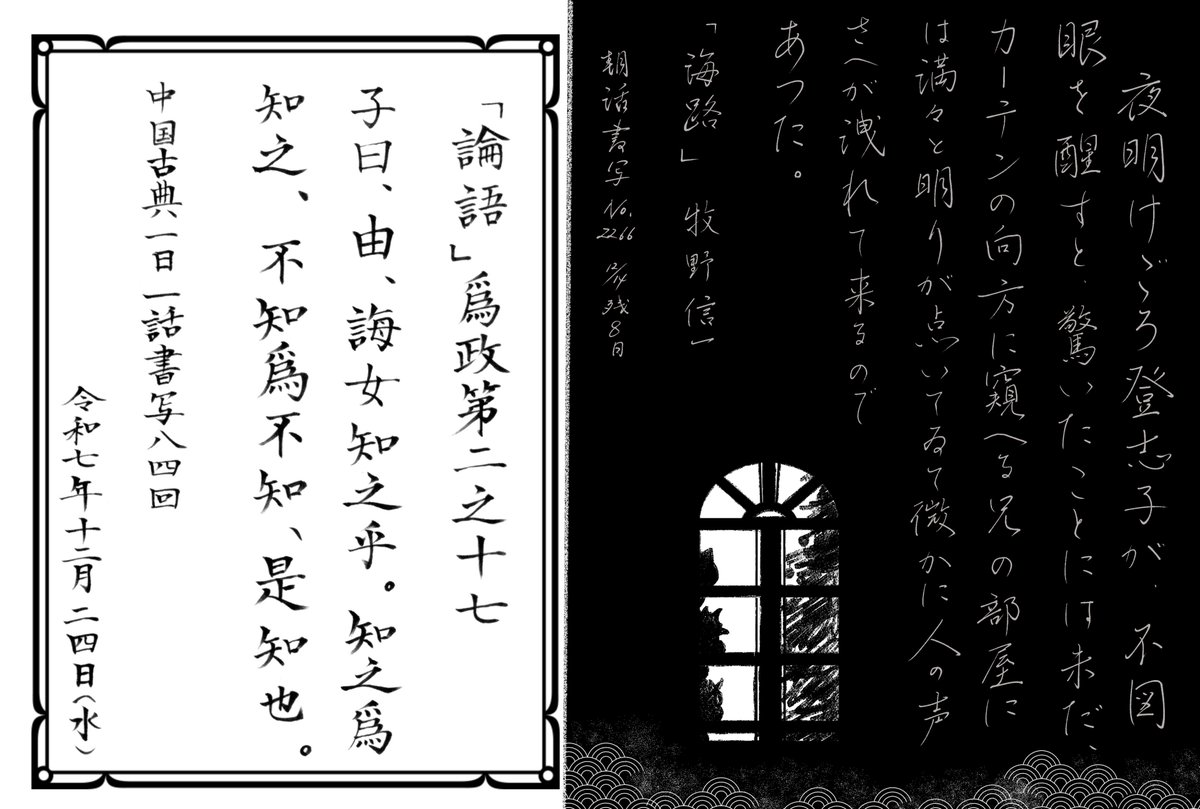 「論語」爲政第二之十七
子曰、由、誨女知之乎。知之爲
知之、不知爲不知、是知也。
中国古典一日一話書写八四回
令和七年十二月二四日（水）
夜明けごろ登志子が、不図
眼を醒すと、驚いたことには未だ、
カーテンの向方に窺へる兄の部屋に
は満々と明りが点いてゐて微かに人の声
さへが洩れて来るので
あつた。
「海路」 牧野信一
朝活書写 No.2266 12/24 残8日